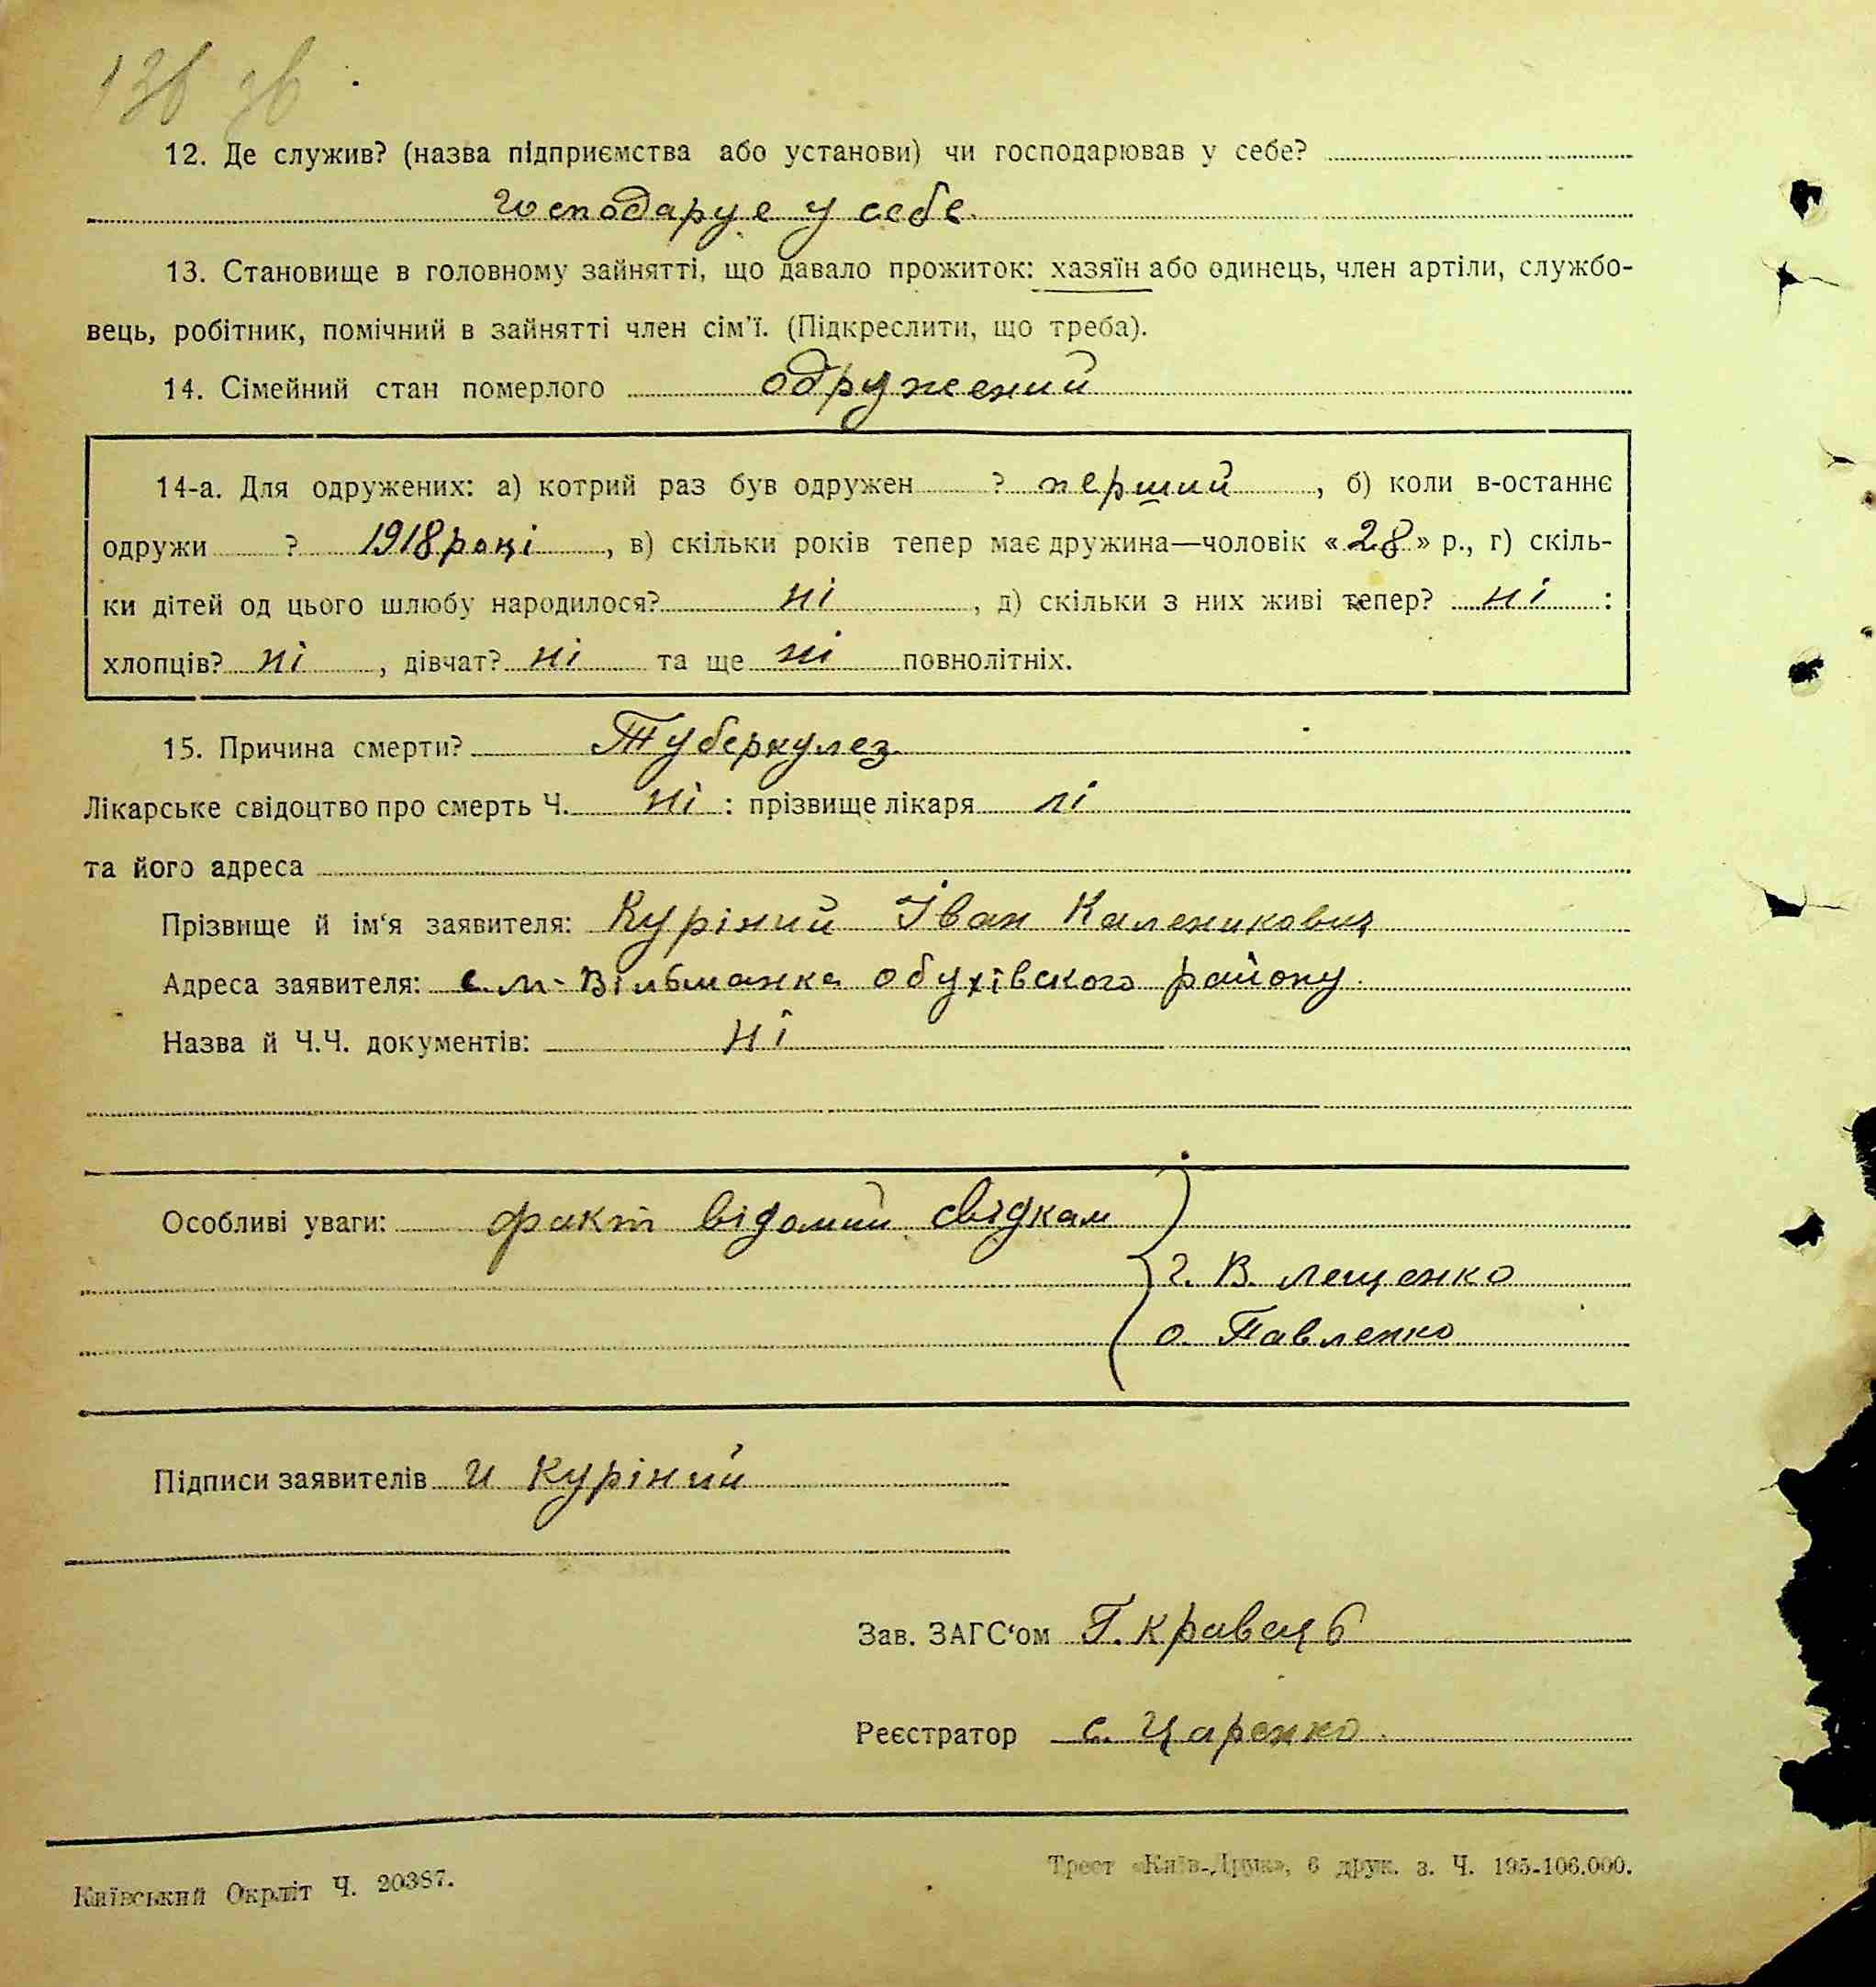 13в зв
12. Де служив? (назва підприємства або установи) чи господарював у себе?
господарує у себе.
13. Становище в головному зайнятті, що давало прожиток: хазяїн або одинець, член артіли, службо-
вець, робітник, помічний в зайнятті член сім'ї. (Підкреслити, що треба).
14. Сімейний стан померлого одружений
14-а. Для одружених: а) котрий раз був одружен ? перший, б) коли в-останнє
одружи ? 1918 році, в) скільки років тепер має дружина—чоловік «28» р., г) скіль-
ки дітей од цього шлюбу народилося? ні, д) скільки з них живі тепер? ні :
хлопців? ні, дівчат? ні та ще ні повнолітніх.
15. Причина смерти? Туберкулез
Лікарське свідоцтво про смерть Ч. ні : прізвище лікаря ні
та його адреса
Прізвище й ім'я заявителя: Куріний Іван Каленикович
Адреса заявителя: с. м-Вільшанка обухівского району.
Назва й Ч.Ч. документів: ні
Особливі уваги: факт відомий свідкам
г. В. Лещенко
о. Павленко
Підписи заявителів И Куріний
Зав. ЗАГС'ом Г. Кравець
Реєстратор с. Царенко.
Київський Окрліт Ч. 20387.
Трест «Київ-Друк», 6 друк. з. Ч. 195-106.000.